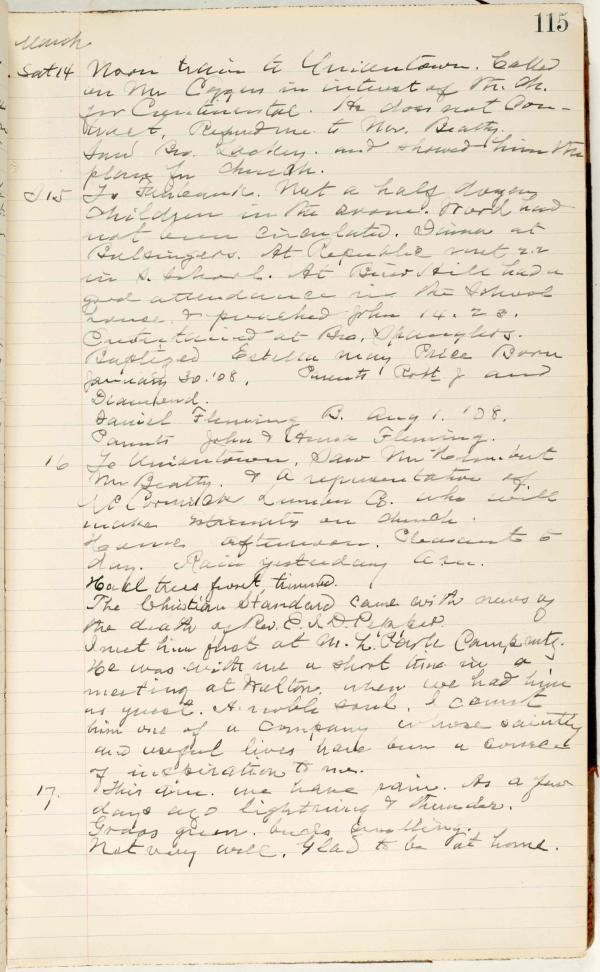 115
March
Sat 14 Noon train to Uniontown. Called
on Mr in interest of M. Ch.
for Continental. He does not Con-
tract, Referred me to Mr. Beatty.
Saw Bro. Lackey. and showed him the
plans for Church.
S 15 To Fairbank. Not a half dozen
children in the room. Word had
not been circulated. Dinner at
Balsingers. At Republic met 22
in S. School. At Bowr Hill had a
good attendance in the School
house, & preached John 14. 23.
Entertained at Bro. Spanglers.
Baptized Estella May Price Born
January 30. '08. Parents Robt J and
Diamond.
Daniel Fleming B. Aug 1. '08.
Parents John & Fleming.
16 To Uniontown. Saw Mr but
Mr Beatty. & a representative of
McCormick Lumber Co. who will
make estimates on church.
Home afternoon. Pleasant to
day. Rain yesterday A.m.
Had trees front trimmed.
The Christian Standard came with news of
the death of Rev. E. I. D. Pepper.
I met him first at M. L. Park Camp mtg.
He was with me a short time in a
meeting at Walton, when we had him
as guest. A noble soul. I count
him one of a company whose saintly
and useful lives have been a source
of inspiration to me.
17. This a.m. we have rain. As a few
days ago lightning & thunder.
Grass green. buds swelling.
Not very well. Glad to be at home.